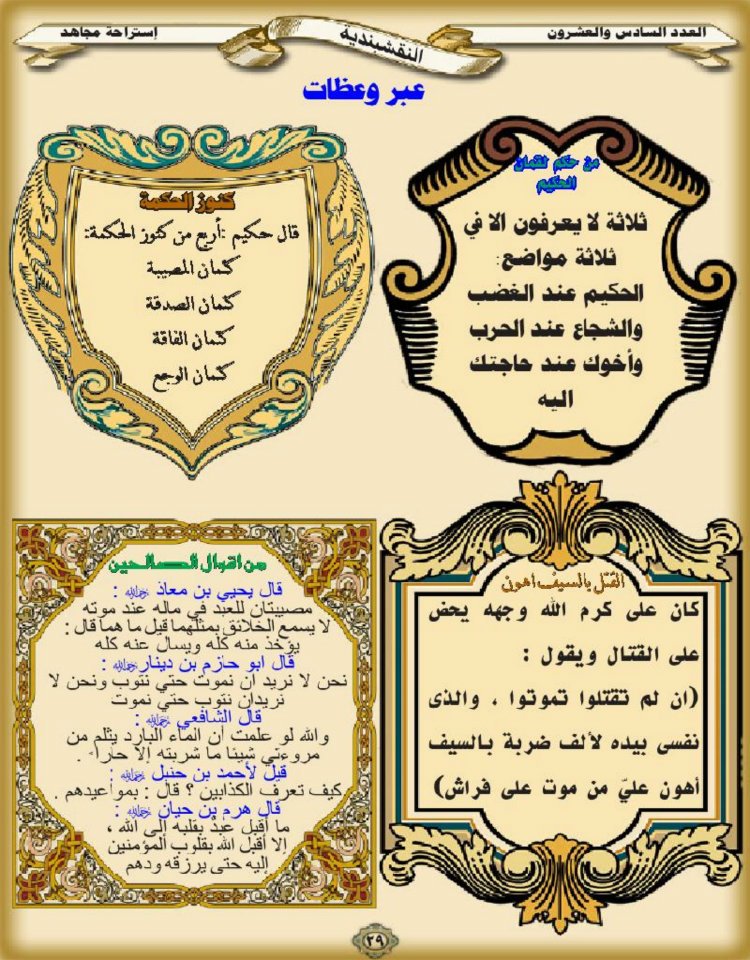 العدد السادس والعشرون
النقشبندية
إستراحة مجاهد
عبر وعظات
من حكم لقمان
الحكيم
ثلاثة لا يعرفون الا في
ثلاثة مواضع:
الحكيم عند الغضب
والشجاع عند الحرب
وأخوك عند حاجتك
اليه
كنوز الحكمة
قال حكيم :أربع من كنوز الحكمة:
كتمان المصيبة
كتمان الصدقة
كتمان الفاقة
كتمان الوجع
القتل بالسيف اهون
كان على كرم الله وجهه يحض
على القتال ويقول :
(ان لم تقتلوا تموتوا ، والذى
نفسى بيده لألف ضربة بالسيف
أهون عليّ من موت على فراش)
من اقوال الصالحين
قال يحيي بن معاذ رحمه الله :
مصيبتان للعبد في ماله عند موته
لا يسمع الخلائق بمثلهما قيل ما هما قال :
يؤخذ منه كله ويسال عنه كله
قال ابو حازم بن دينار رحمه الله :
نحن لا نريد ان نموت حتي نتوب ونحن لا
نريدان نتوب حتي نموت
قال الشافعي رحمه الله :
والله لو علمت أن الماء البارد يثلم من
مروءتي شيئا ما شربته إلا حارا .
قيل لأحمد بن حنبل رحمه الله :
كيف تعرف الكذابين ؟ قال : بمواعيدهم .
قال هرم بن حيان رحمه الله :
ما أقبل عبدٌ بقلبه إلى الله ،
إلا أقبل الله بقلوب المؤمنين
إليه حتى يرزقه ودهم
٢٩